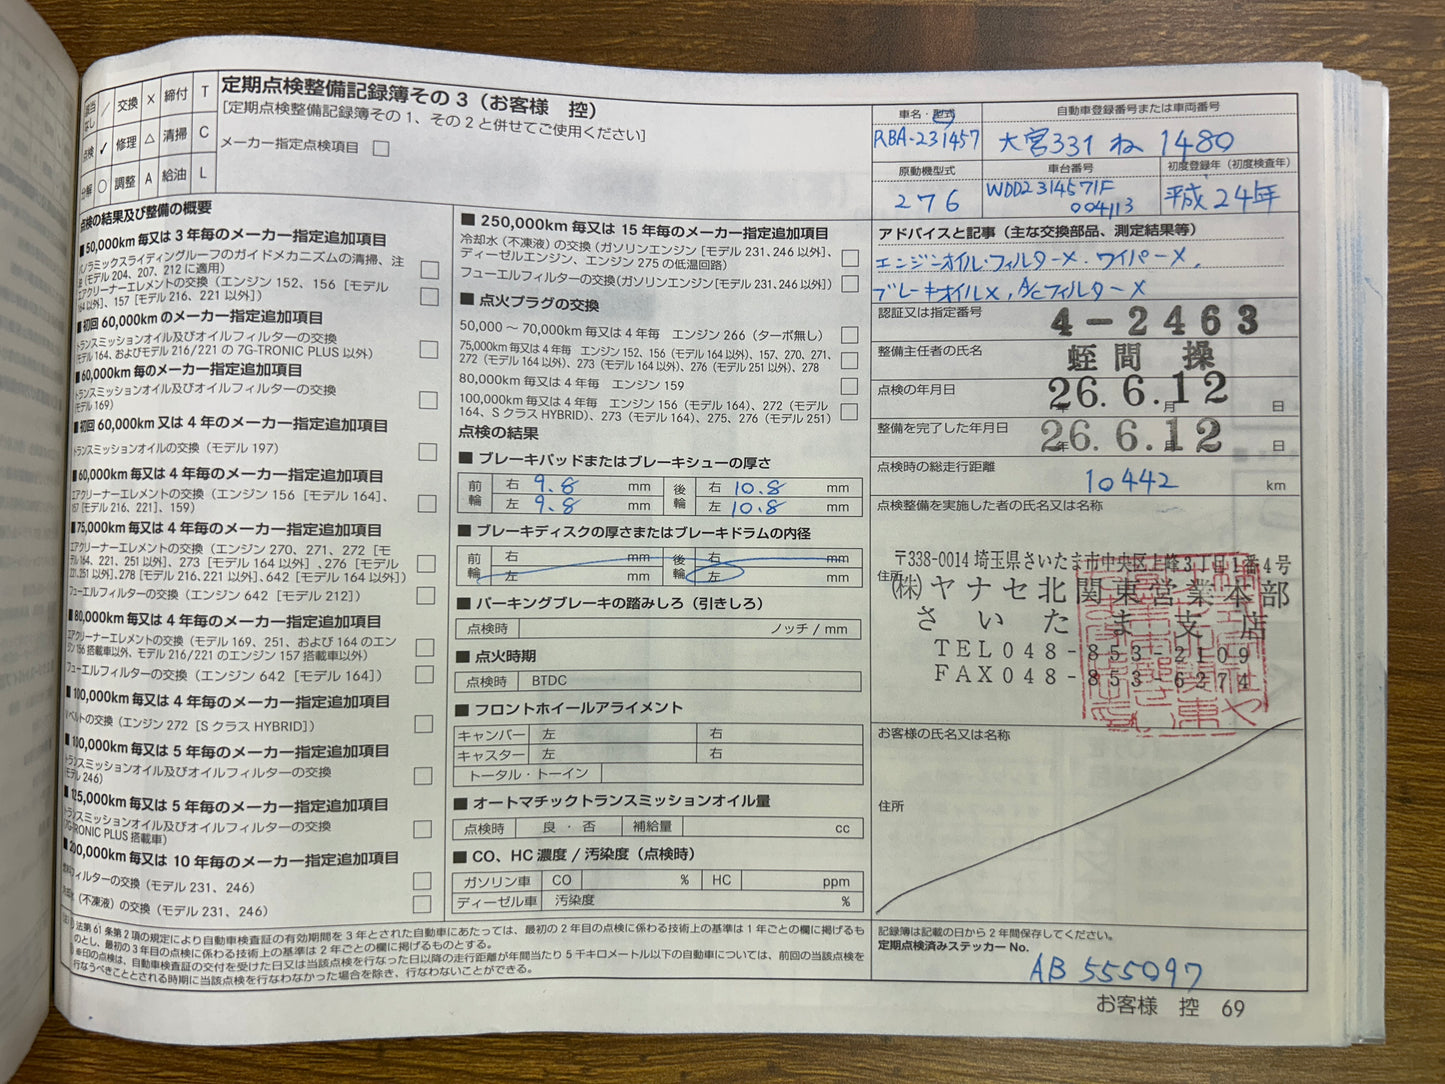 なし ／ 交換 × 締付 T
点検 ✓ 修理 △ 清掃 C
分解 ○ 調整 A 給油 L
定期点検整備記録簿その3（お客様　控）
［定期点検整備記録簿その1、その2と併せてご使用ください］
メーカー指定点検項目
車名・型式
自動車登録番号または車両番号
RBA-231457
大宮331 ね 1480
原動機型式
車台番号
初度登録年（初度検査年）
276
WDD2314571F
004113
平成24年
点検の結果及び整備の概要
■50,000km毎又は3年毎のメーカー指定追加項目
パノラミックスライディングルーフのガイドメカニズムの清掃、注
油（モデル204、207、212に適用）
エアクリーナーエレメントの交換（エンジン152、156［モデル
164以外］、157［モデル216、221以外］）
■初回60,000kmのメーカー指定追加項目
トランスミッションオイル及びオイルフィルターの交換
（モデル164、およびモデル216/221の7G-TRONIC PLUS以外）
■60,000km毎のメーカー指定追加項目
トランスミッションオイル及びオイルフィルターの交換
（モデル169）
■初回60,000km又は4年毎のメーカー指定追加項目
トランスミッションオイルの交換（モデル197）
■60,000km毎又は4年毎のメーカー指定追加項目
エアクリーナーエレメントの交換（エンジン156［モデル164］、
157［モデル216、221］、159）
■75,000km毎又は4年毎のメーカー指定追加項目
エアクリーナーエレメントの交換（エンジン270、271、272［モ
デル164、221、251以外］、273［モデル164以外］、276［モデル
221、251以外］、278［モデル216、221以外］、642［モデル164以外］）
フューエルフィルターの交換（エンジン642［モデル212］）
■80,000km毎又は4年毎のメーカー指定追加項目
エアクリーナーエレメントの交換（モデル169、251、および164のエン
ジン156搭載車以外、モデル216/221のエンジン157搭載車以外）
フューエルフィルターの交換（エンジン642［モデル164］）
■100,000km毎又は4年毎のメーカー指定追加項目
Vベルトの交換（エンジン272［SクラスHYBRID］）
■100,000km毎又は5年毎のメーカー指定追加項目
トランスミッションオイル及びオイルフィルターの交換
（モデル246）
■125,000km毎又は5年毎のメーカー指定追加項目
トランスミッションオイル及びオイルフィルターの交換
（7G-TRONIC PLUS搭載車）
■200,000km毎又は10年毎のメーカー指定追加項目
燃料フィルターの交換（モデル231、246）
冷却水（不凍液）の交換（モデル231、246）
■250,000km毎又は15年毎のメーカー指定追加項目
冷却水（不凍液）の交換（ガソリンエンジン［モデル231、246以外］、
ディーゼルエンジン、エンジン275の低温回路）
フューエルフィルターの交換（ガソリンエンジン［モデル231、246以外］）
■点火プラグの交換
50,000～70,000km毎又は4年毎　エンジン266（ターボ無し）
75,000km毎又は4年毎　エンジン152、156（モデル164以外）、157、270、271、
272（モデル164以外）、273（モデル164以外）、276（モデル251以外）、278
80,000km毎又は4年毎　エンジン159
100,000km毎又は4年毎　エンジン156（モデル164）、272（モデル
164、SクラスHYBRID）、273（モデル164）、275、276（モデル251）
点検の結果
■ブレーキパッドまたはブレーキシューの厚さ
前輪 右 9.8 mm 後輪 右 10.8 mm
左 9.8 mm 左 10.8 mm
■ブレーキディスクの厚さまたはブレーキドラムの内径
前輪 右 mm 後輪 右 mm
左 mm 左 mm
■パーキングブレーキの踏みしろ（引きしろ）
点検時 ノッチ / mm
■点火時期
点検時 BTDC
■フロントホイールアライメント
キャンバー 左 右
キャスター 左 右
トータル・トーイン
■オートマチックトランスミッションオイル量
点検時 良・否 補給量 cc
■CO、HC濃度 / 汚染度（点検時）
ガソリン車 CO % HC ppm
ディーゼル車 汚染度 %
アドバイスと記事（主な交換部品、測定結果等）
エンジンオイル・フィルター×．ワイパー×．
ブレーキオイル×，A/Cフィルター×
認証又は指定番号 4-2463
整備主任者の氏名 蛭間 操
点検の年月日 26年6月12日
整備を完了した年月日 26年6月12日
点検時の総走行距離
10442 km
点検整備を実施した者の氏名又は名称
〒338-0014 埼玉県さいたま市中央区上峰3丁目1番4号
住所
(株)ヤナセ北関東営業本部
さいたま支店
TEL048-853-2109
FAX048-853-6274
お客様の氏名又は名称
住所
法第61条第2項の規定により自動車検査証の有効期間を3年とされた自動車にあたっては、最初の2年目の点検に係わる技術上の基準は1年ごとの欄に掲げるも
のとし、最初の3年目の点検に係わる技術上の基準は2年ごとの欄に掲げるものとする。
※印の点検は、自動車検査証の交付を受けた日又は当該点検を行なった日以降の走行距離が年間当たり5千キロメートル以下の自動車については、前回の当該点検を
行なうべきこととされる時期に当該点検を行なわなかった場合を除き、行なわないことができる。
記録簿は記載の日から2年間保存してください。
定期点検済みステッカーNo.
AB 555097
お客様　控　69